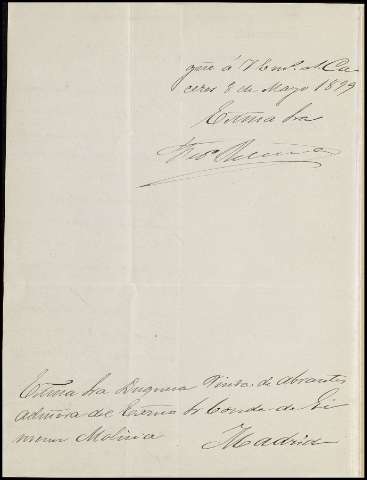 güe á V E m.s. a.s Ca-
ceres 8 de Mayo 1899
Exma Sra
Exma Sra Duquesa Vinda de Abrantes
admora del Exmo Sr Conde de Gi
menez Molina Madrid